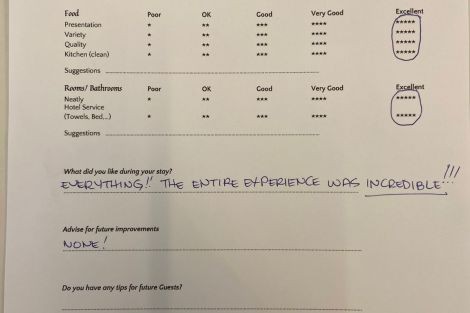 Food Poor OK Good Very Good Excellent
Presentation * ** *** **** *****
Variety * ** *** **** *****
Quality * ** *** **** *****
Kitchen (clean) * ** *** **** *****
Suggestions
Rooms/ Bathrooms Poor OK Good Very Good Excellent
Neatly * ** *** **** *****
Hotel Service
(Towels, Bed...) * ** *** **** *****
Suggestions
What did you like during your stay?
EVERYTHING!! THE ENTIRE EXPERIENCE WAS INCREDIBLE!!!
Advise for future improvements
NONE!
Do you have any tips for future Guests?